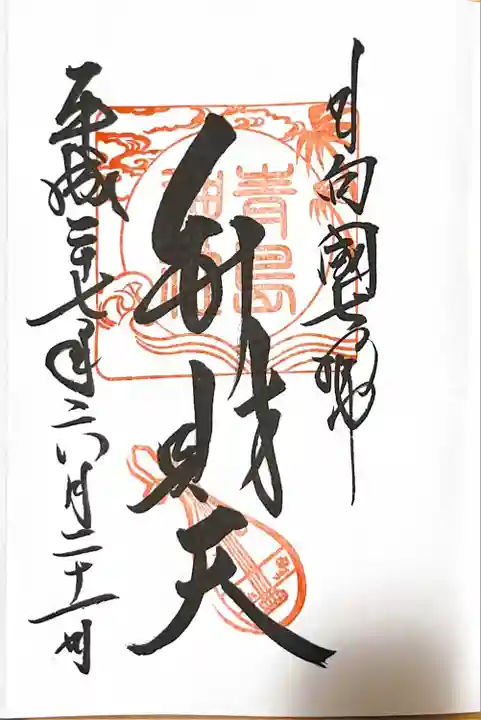 日向國七福神
青島
神社
辨財天
平成二十七年六月二十一日